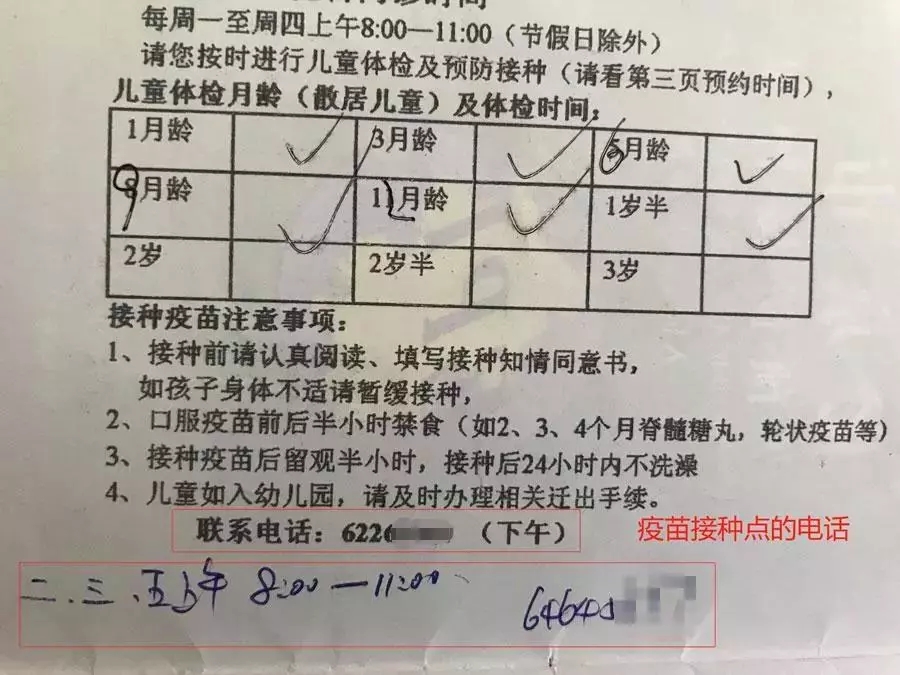 每周一至周四上午8:00—11:00（节假日除外）
请您按时进行儿童体检及预防接种（请看第三页预约时间），
儿童体检月龄（散居儿童）及体检时间：
1月龄 3月龄 6月龄
9月龄 12月龄 1岁半
2岁 2岁半 3岁
接种疫苗注意事项：
1、接种前请认真阅读、填写接种知情同意书，
如孩子身体不适请暂缓接种，
2、口服疫苗前后半小时禁食（如2、3、4个月脊髓糖丸，轮状疫苗等）
3、接种疫苗后留观半小时，接种后24小时内不洗澡
4、儿童如入幼儿园，请及时办理相关迁出手续。
联系电话：6226 （下午）
疫苗接种点的电话
二.三.五上午 8:00—11:00
6464